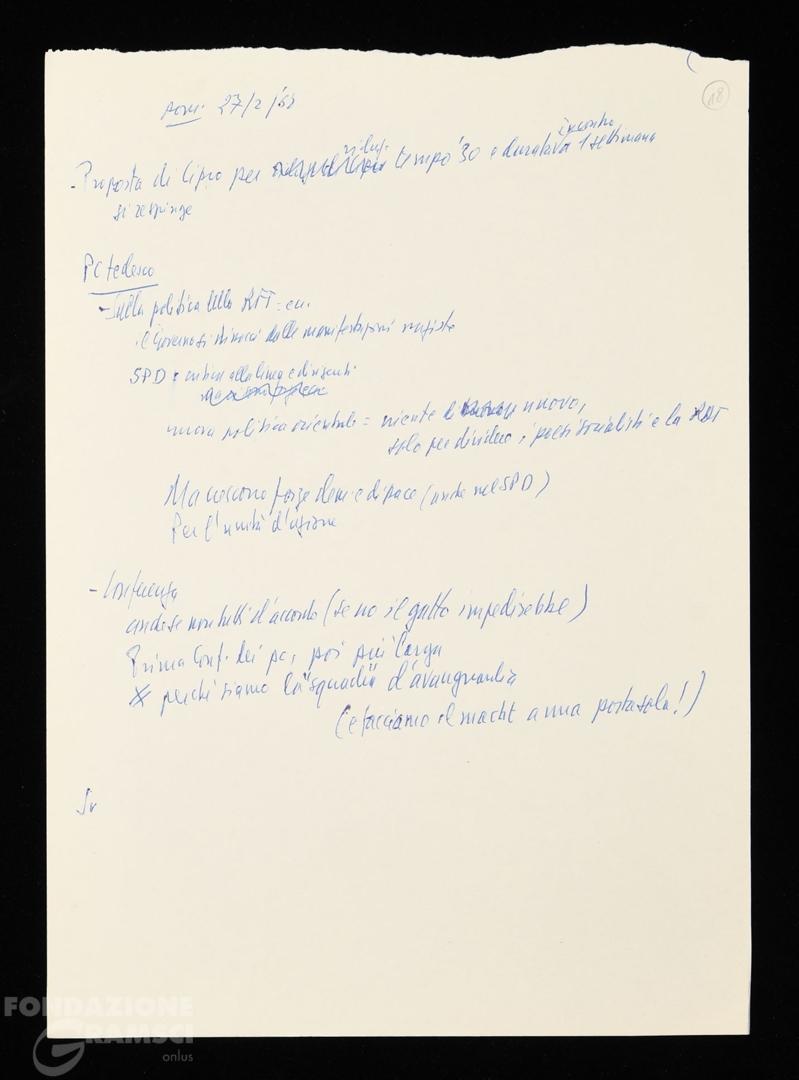 18
pom. 27/2/68
- Proposta di Cipro per riduz. tempo 30' e durata incontro 1 settimana
si respinge
PC tedesco
- Sulla politica della RFT =
il Governo si dalle manifestazioni
SPD = critica alla linea e dirigenti
nuova politica orientale = niente di nuovo,
solo per dividere i paesi socialisti e la RDT
Ma crescono forze dem. e di pace (anche nel SPD)
Per l'unità d'azione
- Conferenza
anche se non tutti d'accordo (se no il gatto impedirebbe)
Prima Conf. dei pc, poi più larga
perché siamo la "squadra" d'avanguardia
(e facciamo il macht a una porta sola!)
Sv
FONDAZIONE
GRAMSCI
onlus